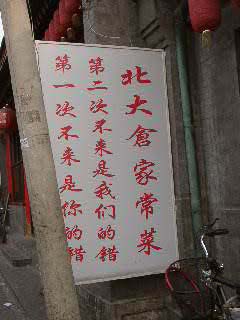 北大倉家常菜
第二次不来是我们的错
第一次不来是你的错